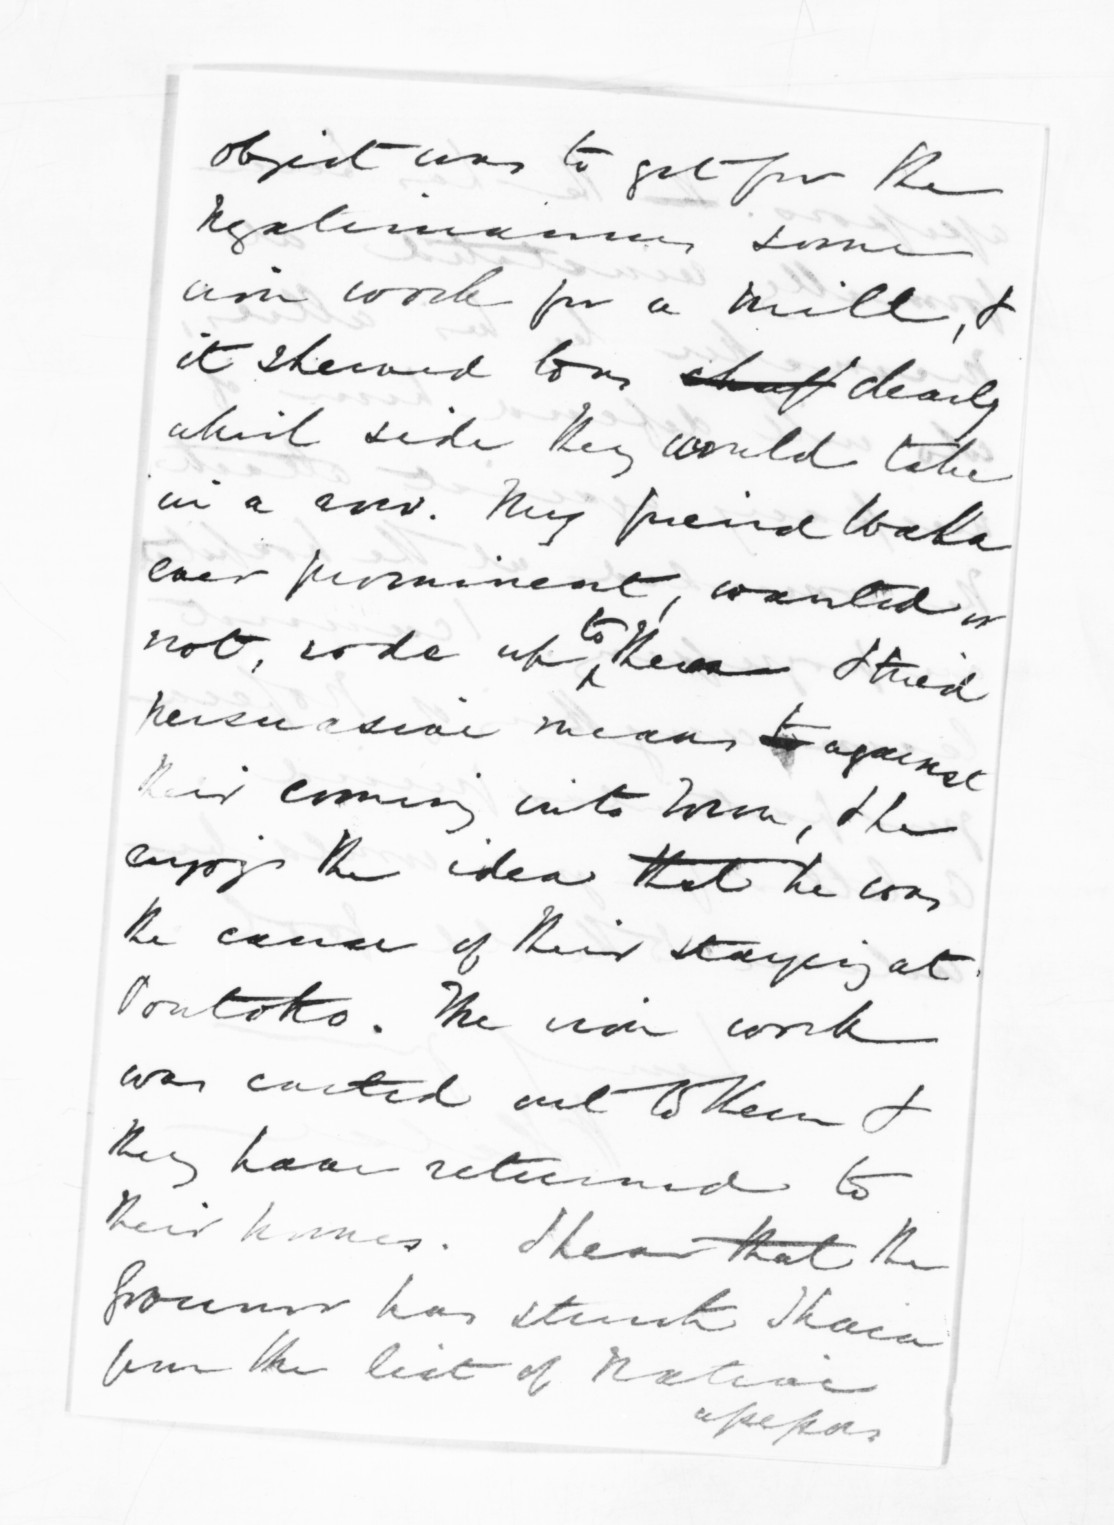 object was to get for the
Ngatimaniapoto some
iron work for a mill, &
it shewed to us clearly
which side they would take
in a row. My friend Waka
ever prominent, wanted or
not, rode up to them & tried
persuasive means against
their coming into Town, & he
enjoys the idea that he was
the cause of their staying at
Poutoko. The iron work
was carted out to them &
they have returned to
their homes. I hear that the
Governor has struck Ihaia
from the list of Native
assessors